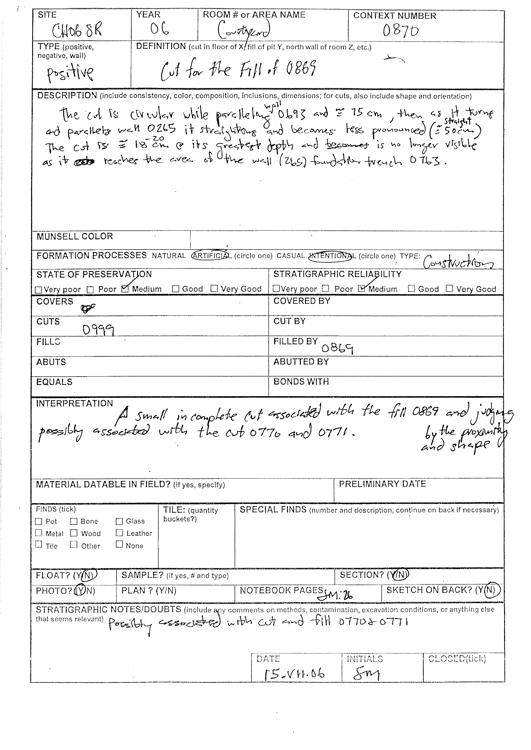 SITE YEAR ROOM # or AREA NAME CONTEXT NUMBER
CH06SR 06 Courtyard 0870
TYPE (positive, negative, wall) DEFINITION (cut in floor of X/fill of pit Y, north wall of room Z, etc.)
positive Cut for the Fill of 0869
DESCRIPTION (include consistency, color, composition, inclusions, dimensions; for cuts, also include shape and orientation)
The cut is circular while paralleling wall 0693 and ≅ 75 cm, then as it turns
and parallels wall 0265 it straightens and becomes less pronounced (≅ 50cm) straight
The cut is ≅ 18-20 cm @ its greatest depth and becomes is no longer visible
as it reaches the area of the wall (265) foundation trench 0763.
MUNSELL COLOR
FORMATION PROCESSES NATURAL ARTIFICIAL (circle one) CASUAL INTENTIONAL (circle one) TYPE: Construction
STATE OF PRESERVATION STRATIGRAPHIC RELIABILITY
Very poor Poor Medium Good Very Good Very poor Poor Medium Good Very Good
COVERS COVERED BY
CUTS 0999 CUT BY
FILLS FILLED BY 0869
ABUTS ABUTTED BY
EQUALS BONDS WITH
INTERPRETATION
A small incomplete cut associated with the fill 0869 and judging
possibly associated with the cut 0770 and 0771. by the proximity
and shape
MATERIAL DATABLE IN FIELD? (if yes, specify) PRELIMINARY DATE
FINDS (tick) TILE: (quantity buckets?) SPECIAL FINDS (number and description, continue on back if necessary)
Pot Bone Glass
Metal Wood Leather
Tile Other None
FLOAT? (Y/N) SAMPLE? (if yes, # and type) SECTION? (Y/N)
PHOTO? (Y/N) PLAN ? (Y/N) NOTEBOOK PAGES JM: 26 SKETCH ON BACK? (Y/N)
STRATIGRAPHIC NOTES/DOUBTS (include any comments on methods, contamination, excavation conditions, or anything else
that seems relevant) possibly associated with cut and fill 0770 & 0771
DATE INITIALS CLOSED(tick)
15.VII.06 JM